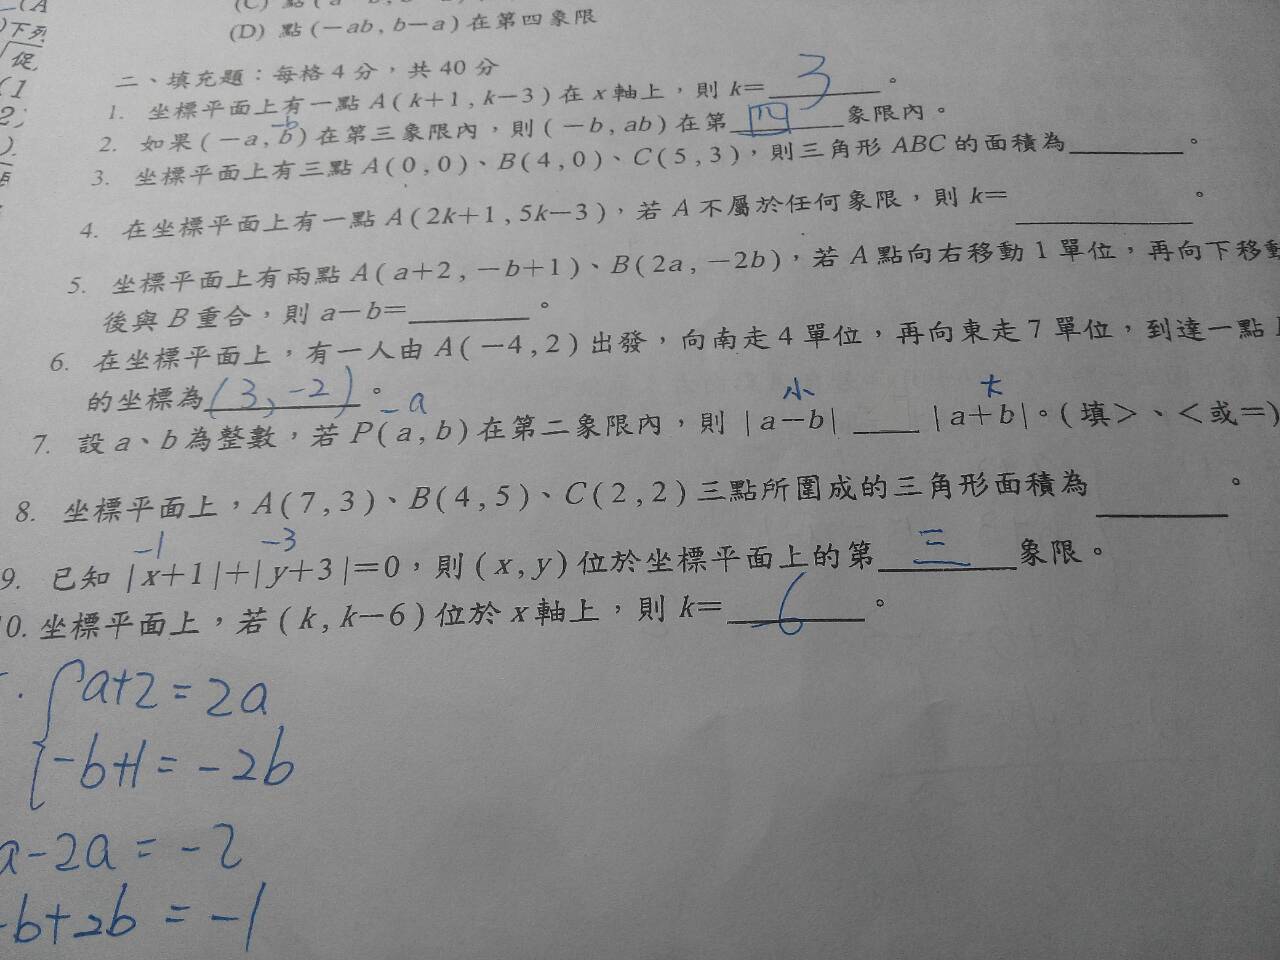 (D) 點(-ab, b-a)在第四象限
下列
二、填充題：每格4分，共40分
1. 坐標平面上有一點A(k+1, k-3)在x軸上，則k=3。
-b
2. 如果(-a, b)在第三象限內，則(-b, ab)在第四象限內。
3. 坐標平面上有三點A(0,0)、B(4,0)、C(5,3)，則三角形ABC的面積為____。
4. 在坐標平面上有一點A(2k+1, 5k-3)，若A不屬於任何象限，則k=____。
5. 坐標平面上有兩點A(a+2, -b+1)、B(2a, -2b)，若A點向右移動1單位，再向下移動
後與B重合，則a-b=____。
6. 在坐標平面上，有一人由A(-4,2)出發，向南走4單位，再向東走7單位，到達一點
的坐標為(3,-2)。
-a 小 大
7. 設a、b為整數，若P(a,b)在第二象限內，則|a-b|____|a+b|。(填>、<或=)
8. 坐標平面上，A(7,3)、B(4,5)、C(2,2)三點所圍成的三角形面積為____。
-1 -3
9. 已知|x+1|+|y+3|=0，則(x,y)位於坐標平面上的第三象限。
10. 坐標平面上，若(k, k-6)位於x軸上，則k=6。
a+2=2a
-b+1=-2b
a-2a=-2
-b+2b=-1